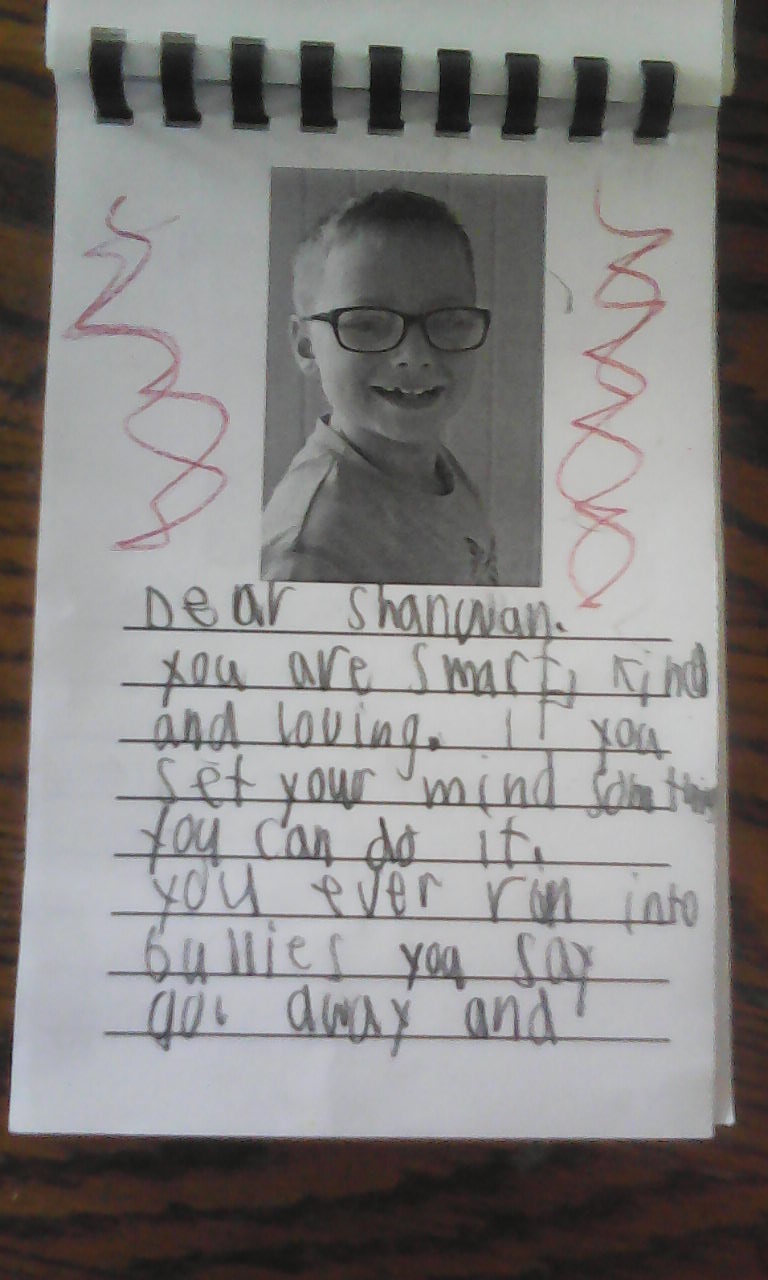 Dear Shanwan.
you are smart, Kind
and loving. if you
set your mind
you can do it.
you ever run into
bullies you say
go away and